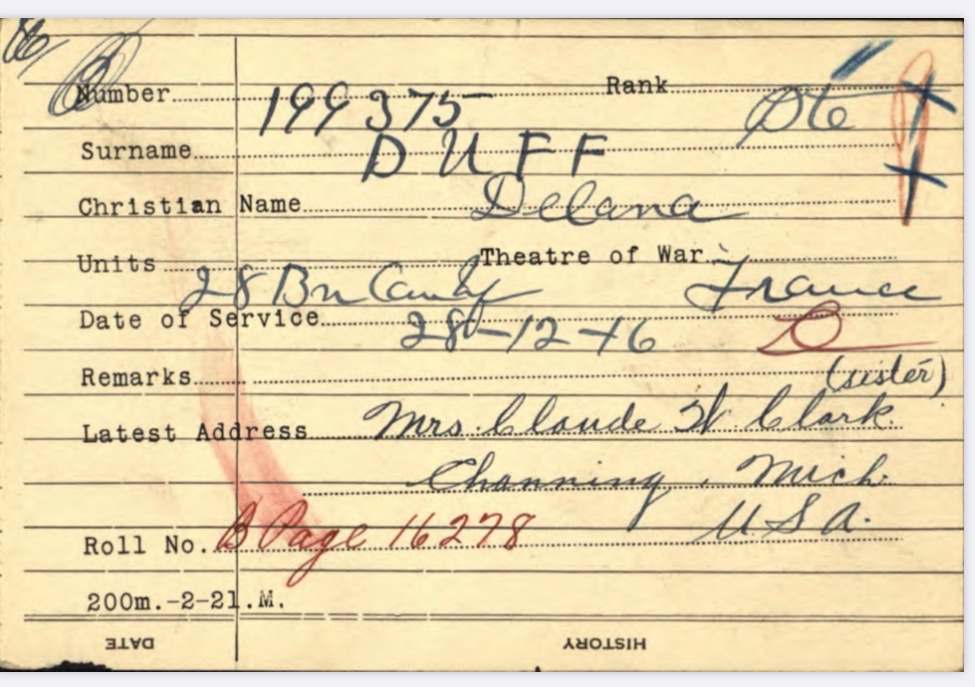 Number 199375 Rank Pte
Surname DUFF
Christian Name Delana
Units 28 Bn Can Inf Theatre of War France
Date of Service 28-12-16 D
Remarks (sister)
Latest Address Mrs. Claude W. Clark.
Channing, Mich.
U.S.A.
Roll No. B Page 16278
200m.-2-21.M.
DATE HISTORY